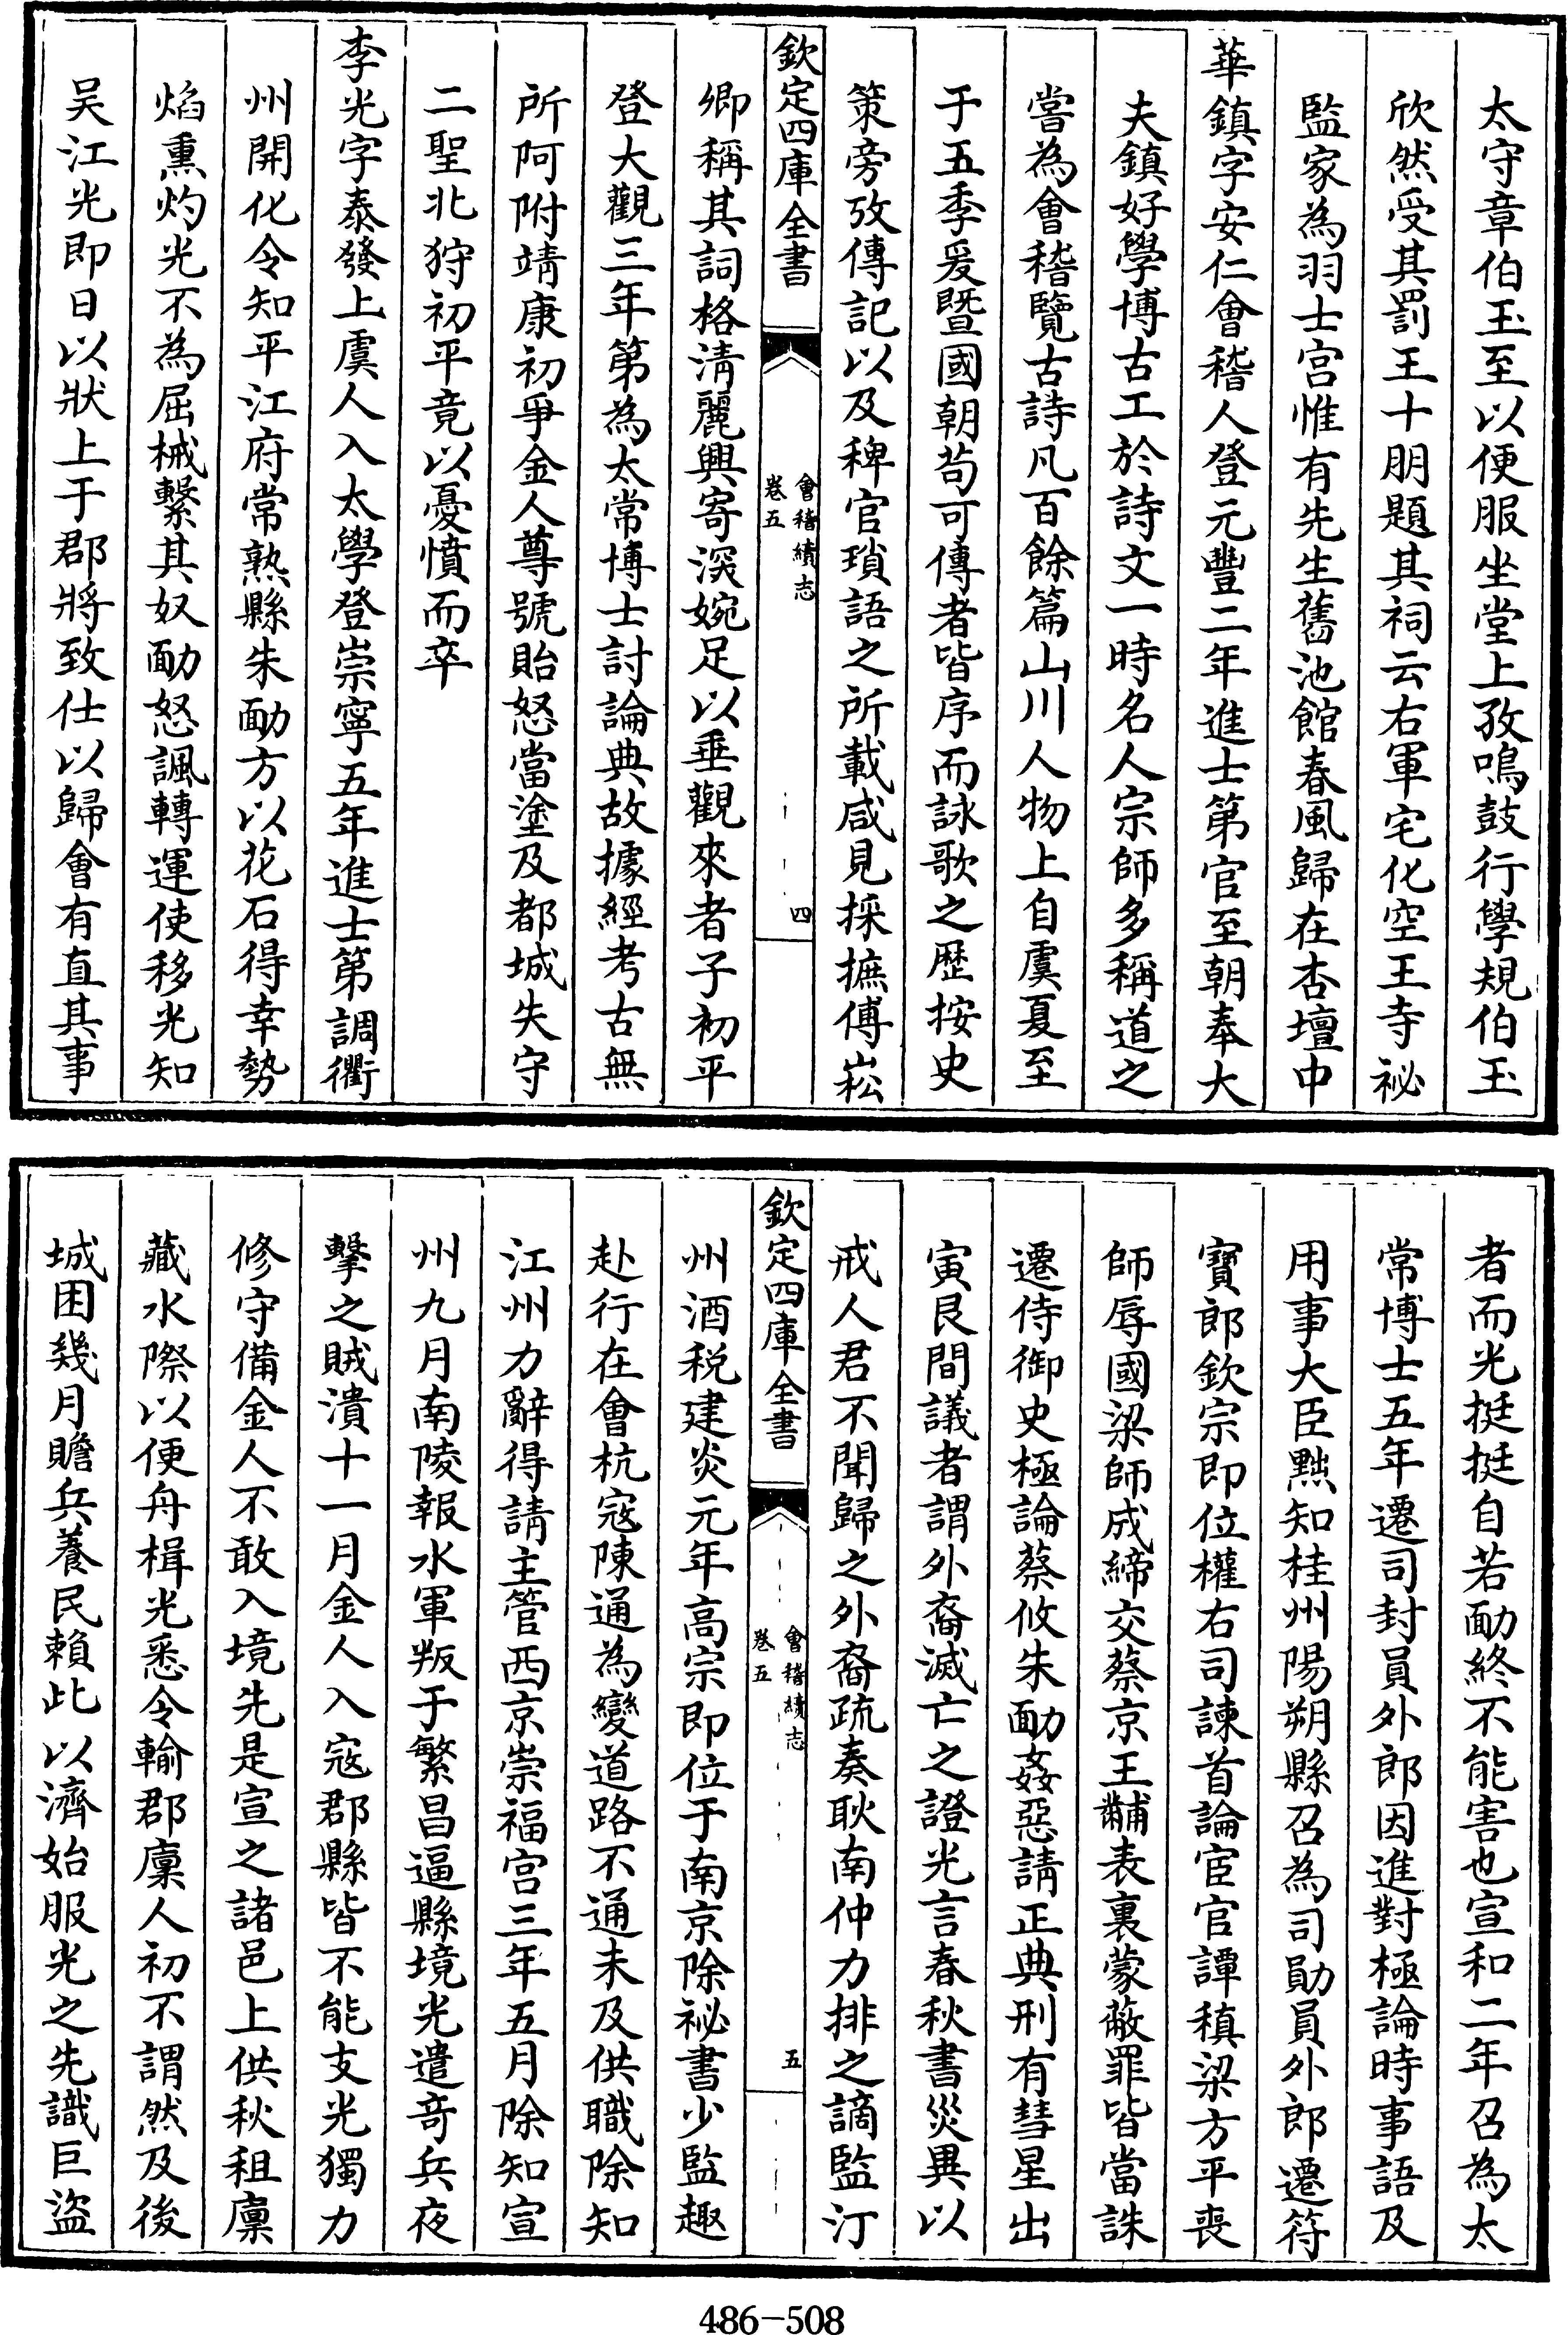 太守章伯玉至以便服坐堂上孜鳴鼓行學規伯玉
欣然受其罰王十朋題其祠云右軍宅化空王寺祕
監家為羽士宫惟有先生舊池館春風歸在杏壇中
華鎮字安仁會稽人登元豐二年進士第官至朝奉大
夫鎮好學博古工於詩文一時名人宗師多稱道之
嘗為會稽覽古詩凡百餘篇山川人物上自虞夏至
于五季爰暨國朝苟可傳者皆序而詠歌之歴按史
策旁攷傳記以及稗官瑣語之所載咸見採摭傅崧
欽定四庫全書
會稽續志
卷五
四
卿稱其詞格清麗興寄深婉足以垂觀來者子初平
登大觀三年第為太常博士討論典故據經考古無
所阿附靖康初爭金人尊號貽怒當塗及都城失守
二聖北狩初平竟以憂憤而卒
李光字泰發上虞人入太學登崇寧五年進士第調衢
州開化令知平江府常熟縣朱勔方以花石得幸勢
焰熏灼光不為屈械繫其奴勔怒諷轉運使移光知
吴江光即日以狀上于郡將致仕以歸會有直其事
者而光挺挺自若勔終不能害也宣和二年召為太
常博士五年遷司封員外郎因進對極論時事語及
用事大臣黜知桂州陽朔縣召為司勛員外郎遷符
寶郎欽宗即位權右司諫首論宦官譚稹梁方平喪
師辱國梁師成締交蔡京王黼表裏蒙蔽罪皆當誅
遷侍御史極論蔡攸朱勔姦惡請正典刑有彗星出
寅艮間議者謂外裔滅亡之證光言春秋書災異以
戒人君不聞歸之外裔疏奏耿南仲力排之謫監汀
欽定四庫全書
會稽續志
卷五
五
州酒税建炎元年高宗即位于南京除祕書少監趣
赴行在會杭寇陳通為變道路不通未及供職除知
江州力辭得請主管西京崇福宫三年五月除知宣
州九月南陵報水軍叛于繁昌逼縣境光遣奇兵夜
擊之賊潰十一月金人入寇郡縣皆不能支光獨力
修守備金人不敢入境先是宣之諸邑上供秋租廩
藏水際以便舟楫光悉令輸郡廩人初不謂然及後
城困幾月贍兵養民賴此以濟始服光之先識巨盜
486-508